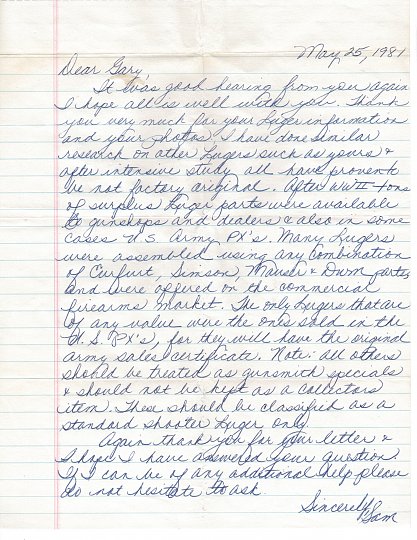 May 25, 1981
Dear Gary,
It was good hearing from you again
I hope all is well with you. Thank
you very much for your Luger information
and your photos. I have done similar
research on other Lugers such as yours &
after intensive study all have proven to
be not factory original. After WWII tons
of surplus Luger parts were available
to gunshops and dealers & also in some
cases U.S. Army PX's. Many Lugers
were assembled using any combination
of Erfurt, Simson, Mauser & Dwm parts,
and were offered on the commercial
firearms market. The only Lugers that are
of any value were the ones sold in the
U.S. PX's, for they will have the original
army sales certificate. Note: all others
should be treated as gunsmith specials
& should not be kept as a collectors
item. These should be classified as a
standard shooter Luger only.
Again thank you for your letter &
I hope I have answered your question.
If I can be of any additional help please
do not hesitate to ask.
Sincerely,
Sam